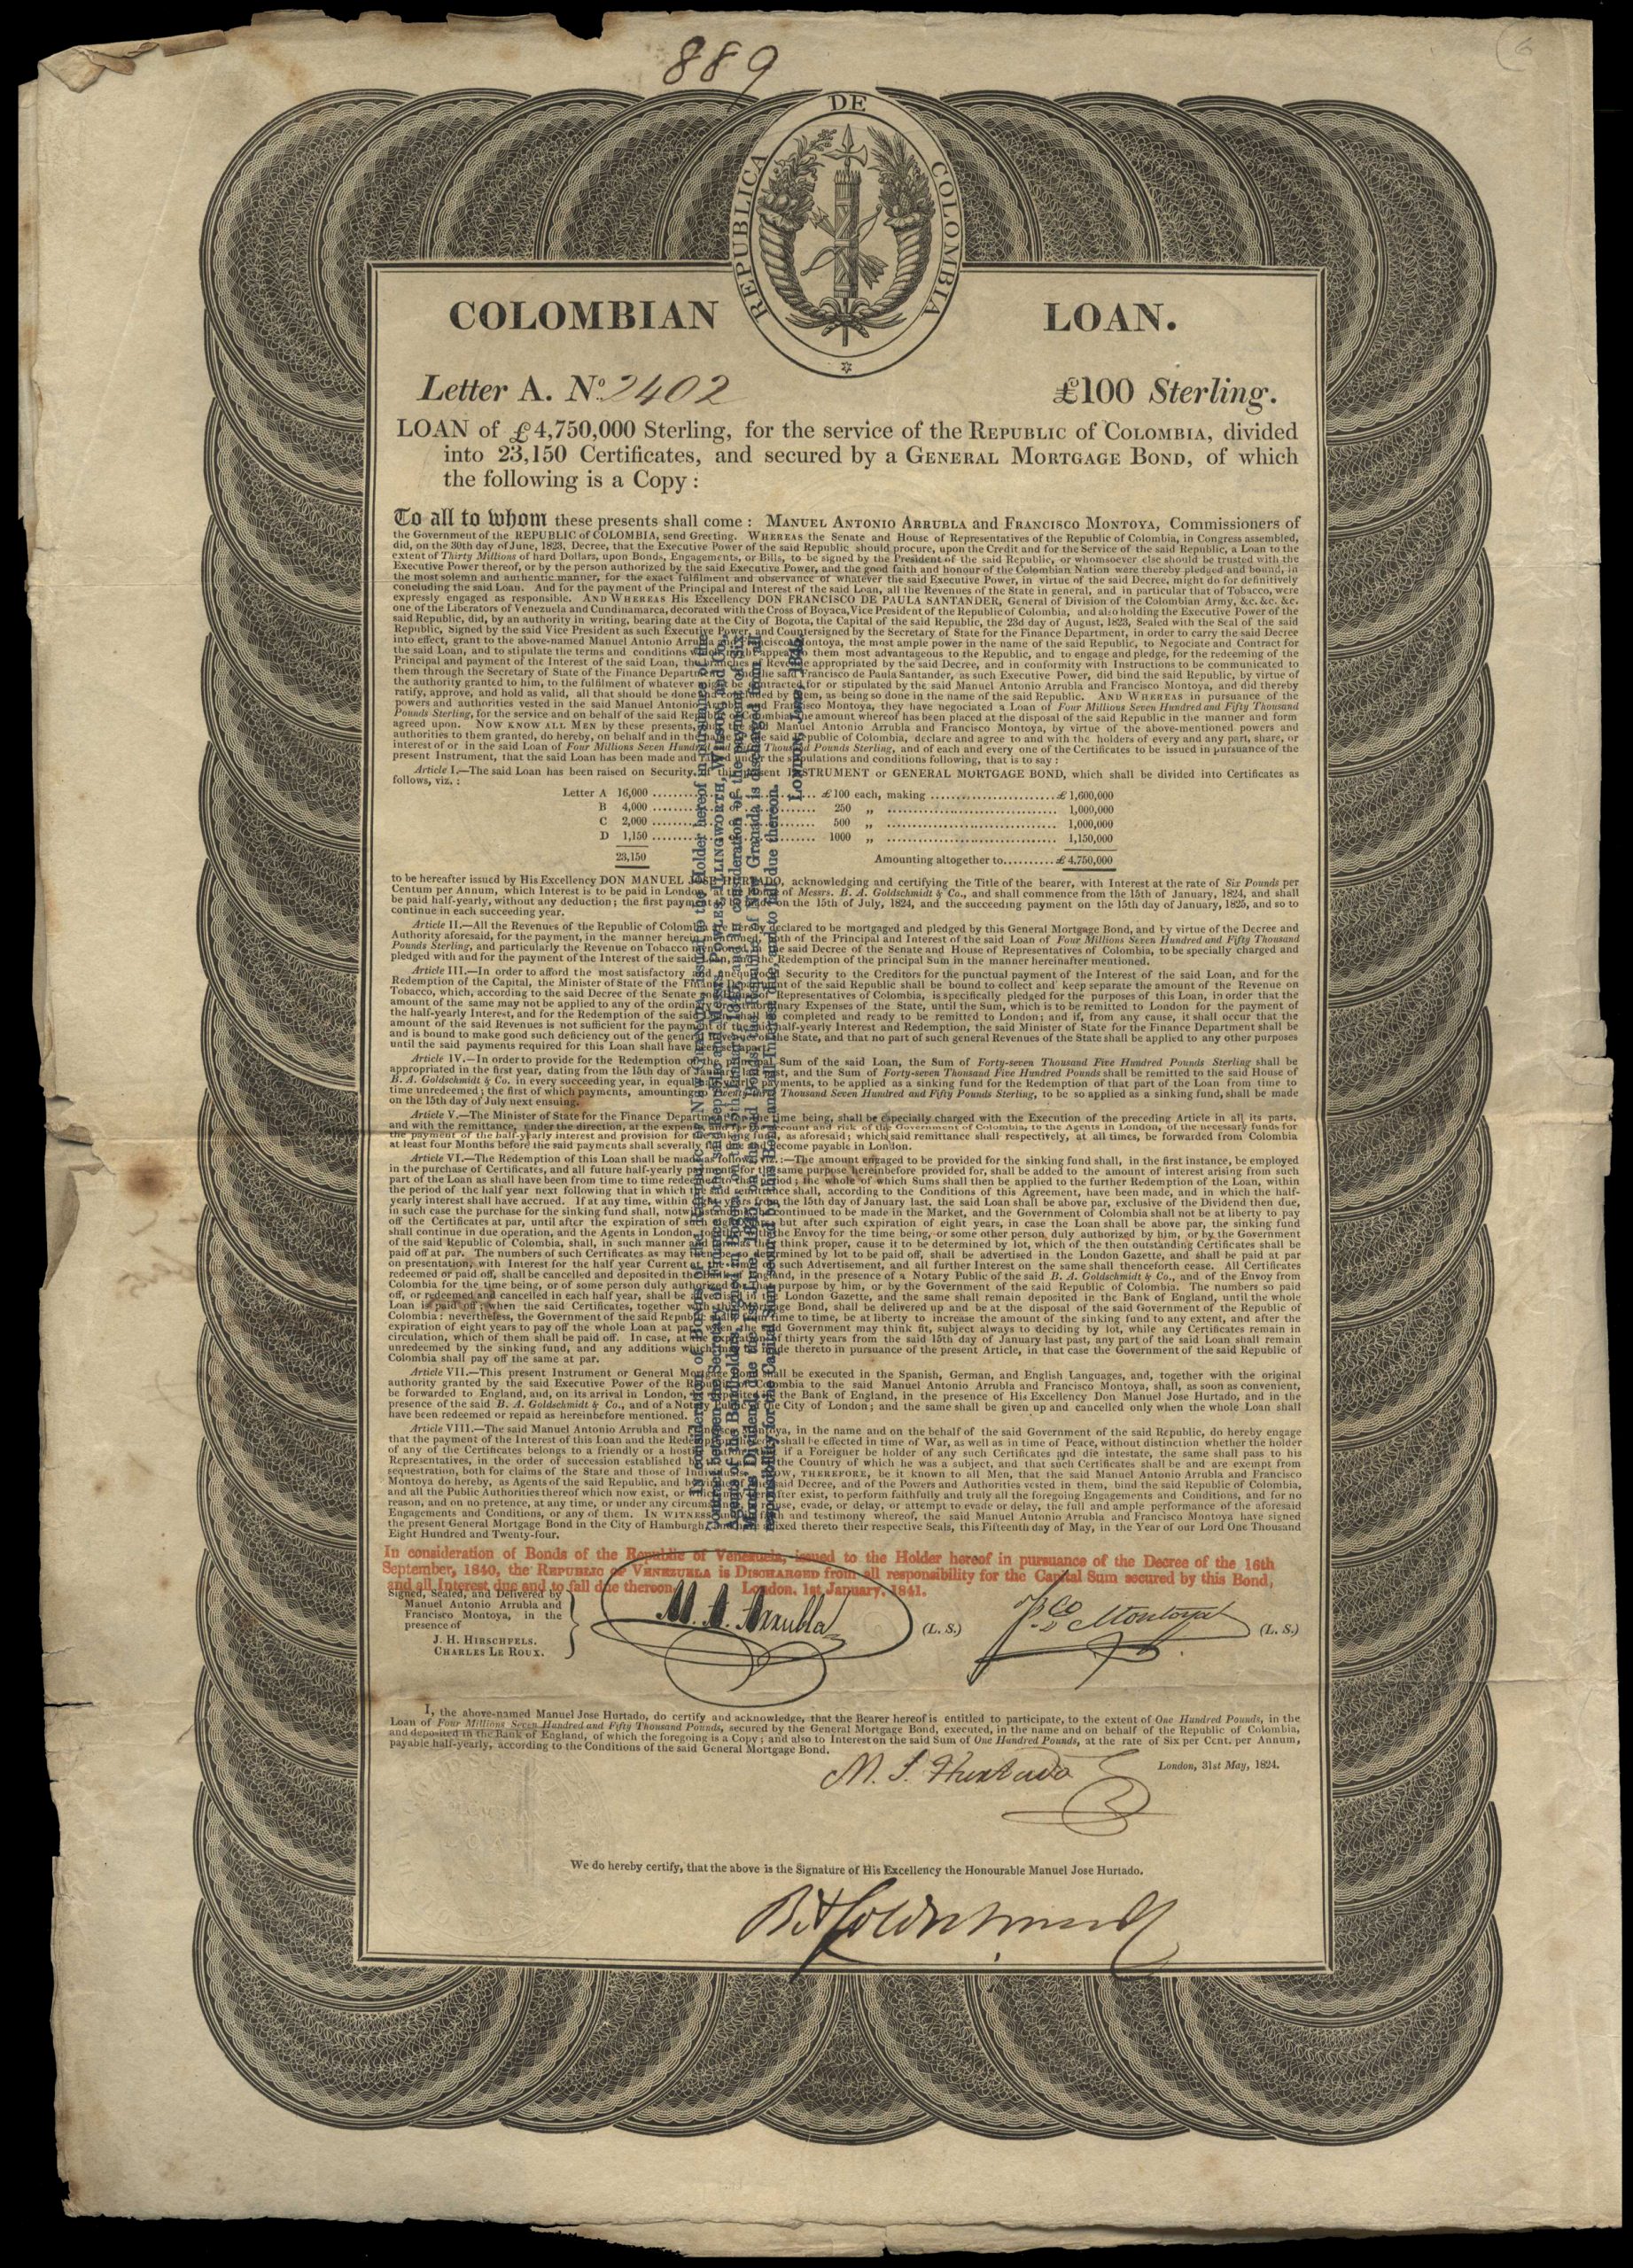 889
6
REPUBLICA DE COLOMBIA
COLOMBIAN LOAN.
Letter A. No. 2402 £100 Sterling.
LOAN of £4,750,000 Sterling, for the service of the REPUBLIC of COLOMBIA, divided
into 23,150 Certificates, and secured by a GENERAL MORTGAGE BOND, of which
the following is a Copy :
To all to whom these presents shall come : MANUEL ANTONIO ARRUBLA and FRANCISCO MONTOYA, Commissioners of
the Government of the REPUBLIC of COLOMBIA, send Greeting. WHEREAS the Senate and House of Representatives of the Republic of Colombia, in Congress assembled,
did, on the 30th day of June, 1823, Decree, that the Executive Power of the said Republic should procure, upon the Credit and for the Service of the said Republic, a Loan to the
extent of Thirty Millions of hard Dollars, upon Bonds, Engagements, or Bills, to be signed by the President of the said Republic, or whomsoever else should be trusted with the
Executive Power thereof, or by the person authorized by the said Executive Power, and the good faith and honour of the Colombian Nation were thereby pledged and bound, in
the most solemn and authentic manner, for the exact fulfilment and observance of whatever the said Executive Power, in virtue of the said Decree, might do for definitively
concluding the said Loan. And for the payment of the Principal and Interest of the said Loan, all the Revenues of the State in general, and in particular that of Tobacco, were
expressly engaged as responsible. AND WHEREAS His Excellency DON FRANCISCO DE PAULA SANTANDER, General of Division of the Colombian Army, &c. &c. &c.
one of the Liberators of Venezuela and Cundinamarca, decorated with the Cross of Boyaca, Vice President of the Republic of Colombia, and also holding the Executive Power of the
said Republic, did, by an authority in writing, bearing date at the City of Bogota, the Capital of the said Republic, the 23d day of August, 1823, Sealed with the Seal of the said
Republic, Signed by the said Vice President as such Executive Power, and Countersigned by the Secretary of State for the Finance Department, in order to carry the said Decree
into effect, grant to the above-named Manuel Antonio Arrubla and Francisco Montoya, the most ample power in the name of the said Republic, to Negociate and Contract for
the said Loan, and to stipulate the terms and conditions which might appear to them most advantageous to the Republic, and to engage and pledge, for the redeeming of the
Principal and payment of the Interest of the said Loan, the branches of Revenue appropriated by the said Decree, and in conformity with Instructions to be communicated to
them through the Secretary of State of the Finance Department. And the said Francisco de Paula Santander, as such Executive Power, did bind the said Republic, by virtue of
the authority granted to him, to the fulfilment of whatever might be contracted for or stipulated by the said Manuel Antonio Arrubla and Francisco Montoya, and did thereby
ratify, approve, and hold as valid, all that should be done and concluded by them, as being so done in the name of the said Republic. AND WHEREAS in pursuance of the
powers and authorities vested in the said Manuel Antonio Arrubla and Francisco Montoya, they have negociated a Loan of Four Millions Seven Hundred and Fifty Thousand
Pounds Sterling, for the service and on behalf of the said Republic of Colombia, the amount whereof has been placed at the disposal of the said Republic in the manner and form
agreed upon. NOW KNOW ALL MEN by these presents, that the said Manuel Antonio Arrubla and Francisco Montoya, by virtue of the above-mentioned powers and
authorities to them granted, do hereby, on behalf and in the name of the said Republic of Colombia, declare and agree to and with the holders of every and any part, share, or
interest of or in the said Loan of Four Millions Seven Hundred and Fifty Thousand Pounds Sterling, and of each and every one of the Certificates to be issued in pursuance of the
present Instrument, that the said Loan has been made and raised under the stipulations and conditions following, that is to say :
Article I.—The said Loan has been raised on Security of this present INSTRUMENT or GENERAL MORTGAGE BOND, which shall be divided into Certificates as
follows, viz. :
Letter A 16,000 £100 each, making £1,600,000
B 4,000 250 „ 1,000,000
C 2,000 500 „ 1,000,000
D 1,150 1000 „ 1,150,000
23,150 Amounting altogether to £4,750,000
to be hereafter issued by His Excellency DON MANUEL JOSE HURTADO, acknowledging and certifying the Title of the bearer, with Interest at the rate of Six Pounds per
Centum per Annum, which Interest is to be paid in London, at the House of Messrs. B. A. Goldschmidt & Co., and shall commence from the 15th of January, 1824, and shall
be paid half-yearly, without any deduction; the first payment to be made on the 15th of July, 1824, and the succeeding payment on the 15th day of January, 1825, and so to
continue in each succeeding year.
Article II.—All the Revenues of the Republic of Colombia are hereby declared to be mortgaged and pledged by this General Mortgage Bond, and by virtue of the Decree and
Authority aforesaid, for the payment, in the manner herein mentioned, both of the Principal and Interest of the said Loan of Four Millions Seven Hundred and Fifty Thousand
Pounds Sterling, and particularly the Revenue on Tobacco mentioned in the said Decree of the Senate and House of Representatives of Colombia, to be specially charged and
pledged with and for the payment of the Interest of the said Loan, and the Redemption of the principal Sum in the manner hereinafter mentioned.
Article III.—In order to afford the most satisfactory and unequivocal Security to the Creditors for the punctual payment of the Interest of the said Loan, and for the
Redemption of the Capital, the Minister of State of the Finance Department of the said Republic shall be bound to collect and keep separate the amount of the Revenue on
Tobacco, which, according to the said Decree of the Senate and House of Representatives of Colombia, is specifically pledged for the purposes of this Loan, in order that the
amount of the same may not be applied to any of the ordinary or extraordinary Expenses of the State, until the Sum, which is to be remitted to London for the payment of
the half-yearly Interest, and for the Redemption of the said Loan, shall be completed and ready to be remitted to London; and if, from any cause, it shall occur that the
amount of the said Revenues is not sufficient for the payment of the said half-yearly Interest and Redemption, the said Minister of State for the Finance Department shall be
and is bound to make good such deficiency out of the general Revenue of the State, and that no part of such general Revenues of the State shall be applied to any other purposes
until the said payments required for this Loan shall have been set apart.
Article IV.—In order to provide for the Redemption of the principal Sum of the said Loan, the Sum of Forty-seven Thousand Five Hundred Pounds Sterling shall be
appropriated in the first year, dating from the 15th day of January last, and the Sum of Forty-seven Thousand Five Hundred Pounds shall be remitted to the said House of
B. A. Goldschmidt & Co. in every succeeding year, in equal half-yearly payments, to be applied as a sinking fund for the Redemption of that part of the Loan from time to
time unredeemed; the first of which payments, amounting to Twenty-three Thousand Seven Hundred and Fifty Pounds Sterling, to be so applied as a sinking fund, shall be made
on the 15th day of July next ensuing.
Article V.—The Minister of State for the Finance Department for the time being, shall be especially charged with the Execution of the preceding Article in all its parts,
and with the remittance, under the direction, at the expense, and for the account and risk of the Government of Colombia, to the Agents in London, of the necessary funds for
the payment of the half-yearly interest and provision for the sinking fund, as aforesaid; which said remittance shall respectively, at all times, be forwarded from Colombia
at least four Months before the said payments shall severally fall due and become payable in London.
Article VI.—The Redemption of this Loan shall be made as follows, viz.:—The amount engaged to be provided for the sinking fund shall, in the first instance, be employed
in the purchase of Certificates, and all future half-yearly payments for the same purpose hereinbefore provided for, shall be added to the amount of interest arising from such
part of the Loan as shall have been from time to time redeemed to that period; the whole of which Sums shall then be applied to the further Redemption of the Loan, within
the period of the half year next following that in which the said remittance shall, according to the Conditions of this Agreement, have been made, and in which the half-
yearly interest shall have accrued. If at any time, within eight years from the 15th day of January last, the said Loan shall be above par, exclusive of the Dividend then due,
in such case the purchase for the sinking fund shall, notwithstanding, be continued to be made in the Market, and the Government of Colombia shall not be at liberty to pay
off the Certificates at par, until after the expiration of such eight years; but after such expiration of eight years, in case the Loan shall be above par, the sinking fund
shall continue in due operation, and the Agents in London, together with the Envoy for the time being, or some other person duly authorized by him, or by the Government
of the said Republic of Colombia, shall, in such manner and form as they think proper, cause it to be determined by lot, which of the then outstanding Certificates shall be
paid off at par. The numbers of such Certificates as may then be so determined by lot to be paid off, shall be advertised in the London Gazette, and shall be paid at par
on presentation, with Interest for the half year Current at the time of such Advertisement, and all further Interest on the same shall thenceforth cease. All Certificates
redeemed or paid off, shall be cancelled and deposited in the Bank of England, in the presence of a Notary Public of the said B. A. Goldschmidt & Co., and of the Envoy from
Colombia for the time being, or of some person duly authorized for that purpose by him, or by the Government of the said Republic of Colombia. The numbers so paid
off, or redeemed and cancelled in each half year, shall be advertised in the London Gazette, and the same shall remain deposited in the Bank of England, until the whole
Loan is paid off; when the said Certificates, together with this Mortgage Bond, shall be delivered up and be at the disposal of the said Government of the Republic of
Colombia: nevertheless, the Government of the said Republic shall, from time to time, be at liberty to increase the amount of the sinking fund to any extent, and after the
expiration of eight years to pay off the whole Loan at par, when the said Government may think fit, subject always to deciding by lot, while any Certificates remain in
circulation, which of them shall be paid off. In case, at the expiration of thirty years from the said 15th day of January last past, any part of the said Loan shall remain
unredeemed by the sinking fund, and any additions which may be made thereto in pursuance of the present Article, in that case the Government of the said Republic of
Colombia shall pay off the same at par.
Article VII.—This present Instrument or General Mortgage Bond shall be executed in the Spanish, German, and English Languages, and, together with the original
authority granted by the said Executive Power of the Republic of Colombia to the said Manuel Antonio Arrubla and Francisco Montoya, shall, as soon as convenient,
be forwarded to England, and, on its arrival in London, be deposited in the Bank of England, in the presence of His Excellency Don Manuel Jose Hurtado, and in the
presence of the said B. A. Goldschmidt & Co., and of a Notary Public of the City of London; and the same shall be given up and cancelled only when the whole Loan shall
have been redeemed or repaid as hereinbefore mentioned.
Article VIII.—The said Manuel Antonio Arrubla and Francisco Montoya, in the name and on the behalf of the said Government of the said Republic, do hereby engage
that the payment of the Interest of this Loan and the Redemption thereof shall be effected in time of War, as well as in time of Peace, without distinction whether the holder
of any of the Certificates belongs to a friendly or a hostile nation; if a Foreigner be holder of any such Certificates and die intestate, the same shall pass to his
Representatives, in the order of succession established by the Country of which he was a subject, and that such Certificates shall be and are exempt from
sequestration, both for claims of the State and those of Individuals. NOW, THEREFORE, be it known to all Men, that the said Manuel Antonio Arrubla and Francisco
Montoya do hereby, as Agents of the said Republic, and by virtue of the said Decree, and of the Powers and Authorities vested in them, bind the said Republic of Colombia,
and all the Public Authorities thereof which now exist, or which may hereafter exist, to perform faithfully and truly all the foregoing Engagements and Conditions, and for no
reason, and on no pretence, at any time, or under any circumstances, to refuse, evade, or delay, or attempt to evade or delay, the full and ample performance of the aforesaid
Engagements and Conditions, or any of them. IN WITNESS and faith and testimony whereof, the said Manuel Antonio Arrubla and Francisco Montoya have signed
the present General Mortgage Bond in the City of Hamburgh, and have affixed thereto their respective Seals, this Fifteenth day of May, in the Year of our Lord One Thousand
Eight Hundred and Twenty-four.
In consideration of Bonds of the Republic of New Granada, issued to the Holder hereof in pursuance of the
Contract between the Secretary of Finance of the said Republic and Messrs. POWLES, ILLINGWORTH, WILSON, and Co.
Agents of the Bondholders, signed in Bogota on the 15th January, 1845, and in consideration of the payment of Six
Months' Dividend, due the 1st June, 1845, on the said Bonds, the Republic of New Granada is discharged from all
responsibility for the Capital Sum secured by this Bond, and all Interest due and to fall due thereon.
LONDON, June, 1845.
In consideration of Bonds of the Republic of Venezuela, issued to the Holder hereof in pursuance of the Decree of the 16th
September, 1840, the REPUBLIC OF VENEZUELA is DISCHARGED from all responsibility for the Capital Sum secured by this Bond,
and all Interest due and to fall due thereon. London, 1st January, 1841.
Signed, Sealed, and Delivered by
Manuel Antonio Arrubla and
Francisco Montoya, in the
presence of
J. H. HIRSCHFELS.
CHARLES LE ROUX.
M. A. Arrubla (L. S.) Fco Montoya (L. S.)
I, the above-named Manuel Jose Hurtado, do certify and acknowledge, that the Bearer hereof is entitled to participate, to the extent of One Hundred Pounds, in the
Loan of Four Millions Seven Hundred and Fifty Thousand Pounds, secured by the General Mortgage Bond, executed, in the name and on behalf of the Republic of Colombia,
and deposited in the Bank of England, of which the foregoing is a Copy; and also to Interest on the said Sum of One Hundred Pounds, at the rate of Six per Cent. per Annum,
payable half-yearly, according to the Conditions of the said General Mortgage Bond.
London, 31st May, 1824.
M. J. Hurtado
We do hereby certify, that the above is the Signature of His Excellency the Honourable Manuel Jose Hurtado.
B A Goldschmidt